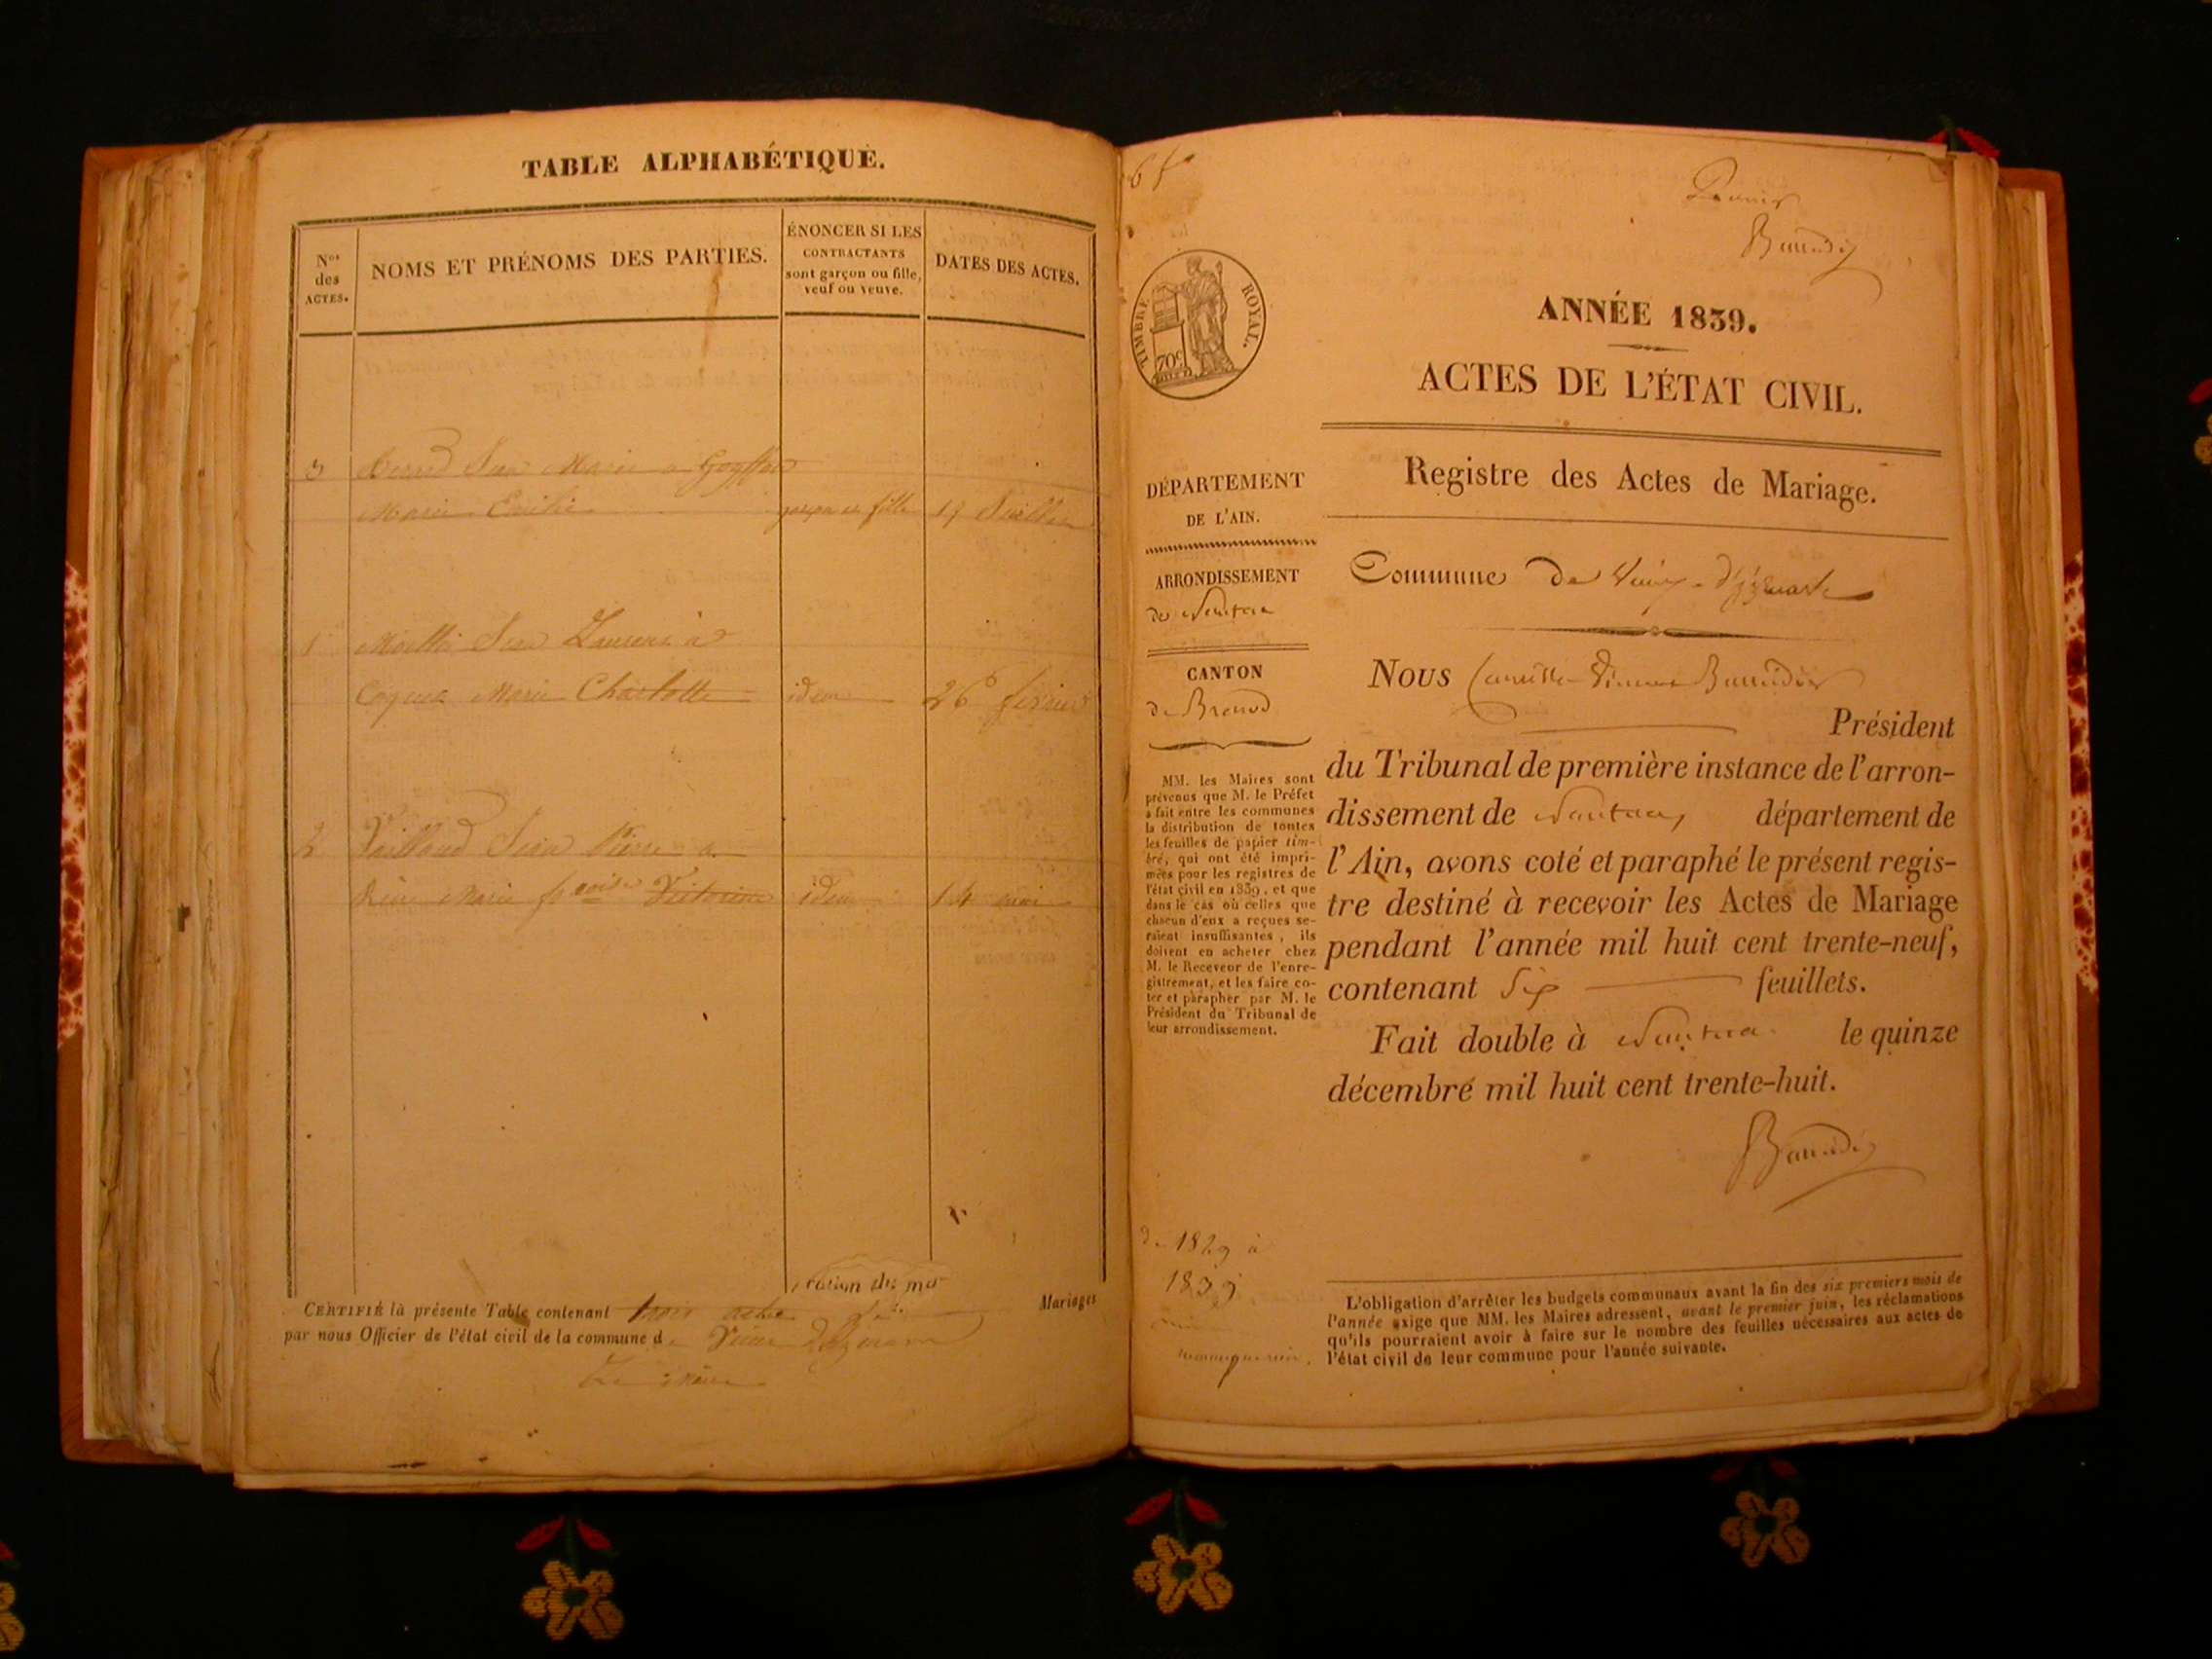 TABLE ALPHABÉTIQUE.
Nos des ACTES.
NOMS ET PRÉNOMS DES PARTIES.
ÉNONCER SI LES
CONTRACTANTS
sont garçon ou fille,
veuf ou veuve.
DATES DES ACTES.
3 Jean Marie a Goyffon
Marie garçon et fille 19 Juillet
1 Jean Laurent a
Marie Charlotte idem 26 février
2 Jean Pierre a
Marie Victorine idem 14 mai
CERTIFIÉ la présente Table contenant trois actes Mariages
par nous Officier de l'état civil de la commune d
Le Maire
Premier
ANNÉE 1839.
ACTES DE L'ÉTAT CIVIL.
Registre des Actes de Mariage.
TIMBRE ROYAL.
70c
DÉPARTEMENT
DE L'AIN.
ARRONDISSEMENT
de Nantua
CANTON
de Brenod
MM. les Maires sont
prévenus que M. le Préfet
a fait entre les communes
la distribution de toutes
les feuilles de papier tim-
bré, qui ont été impri-
mées pour les registres de
l'état civil en 1839, et que
dans le cas où celles que
chacun d'eux a reçues se-
raient insuffisantes, ils
doivent en acheter chez
M. le Receveur de l'enre-
gistrement, et les faire co-
ter et parapher par M. le
Président du Tribunal de
leur arrondissement.
de 1829 à
1839
Commune De Vieux-d'Izenave
Nous Camille
Président
du Tribunal de première instance de l'arron-
dissement de Nantua, département de
l'Ain, avons coté et paraphé le présent regis-
tre destiné à recevoir les Actes de Mariage
pendant l'année mil huit cent trente-neuf,
contenant Six feuillets.
Fait double à Nantua le quinze
décembre mil huit cent trente-huit.
L'obligation d'arrêter les budgets communaux avant la fin des six premiers mois de
l'année exige que MM. les Maires adressent, avant le premier juin, les réclamations
qu'ils pourraient avoir à faire sur le nombre des feuilles nécessaires aux actes de
l'état civil de leur commune pour l'année suivante.